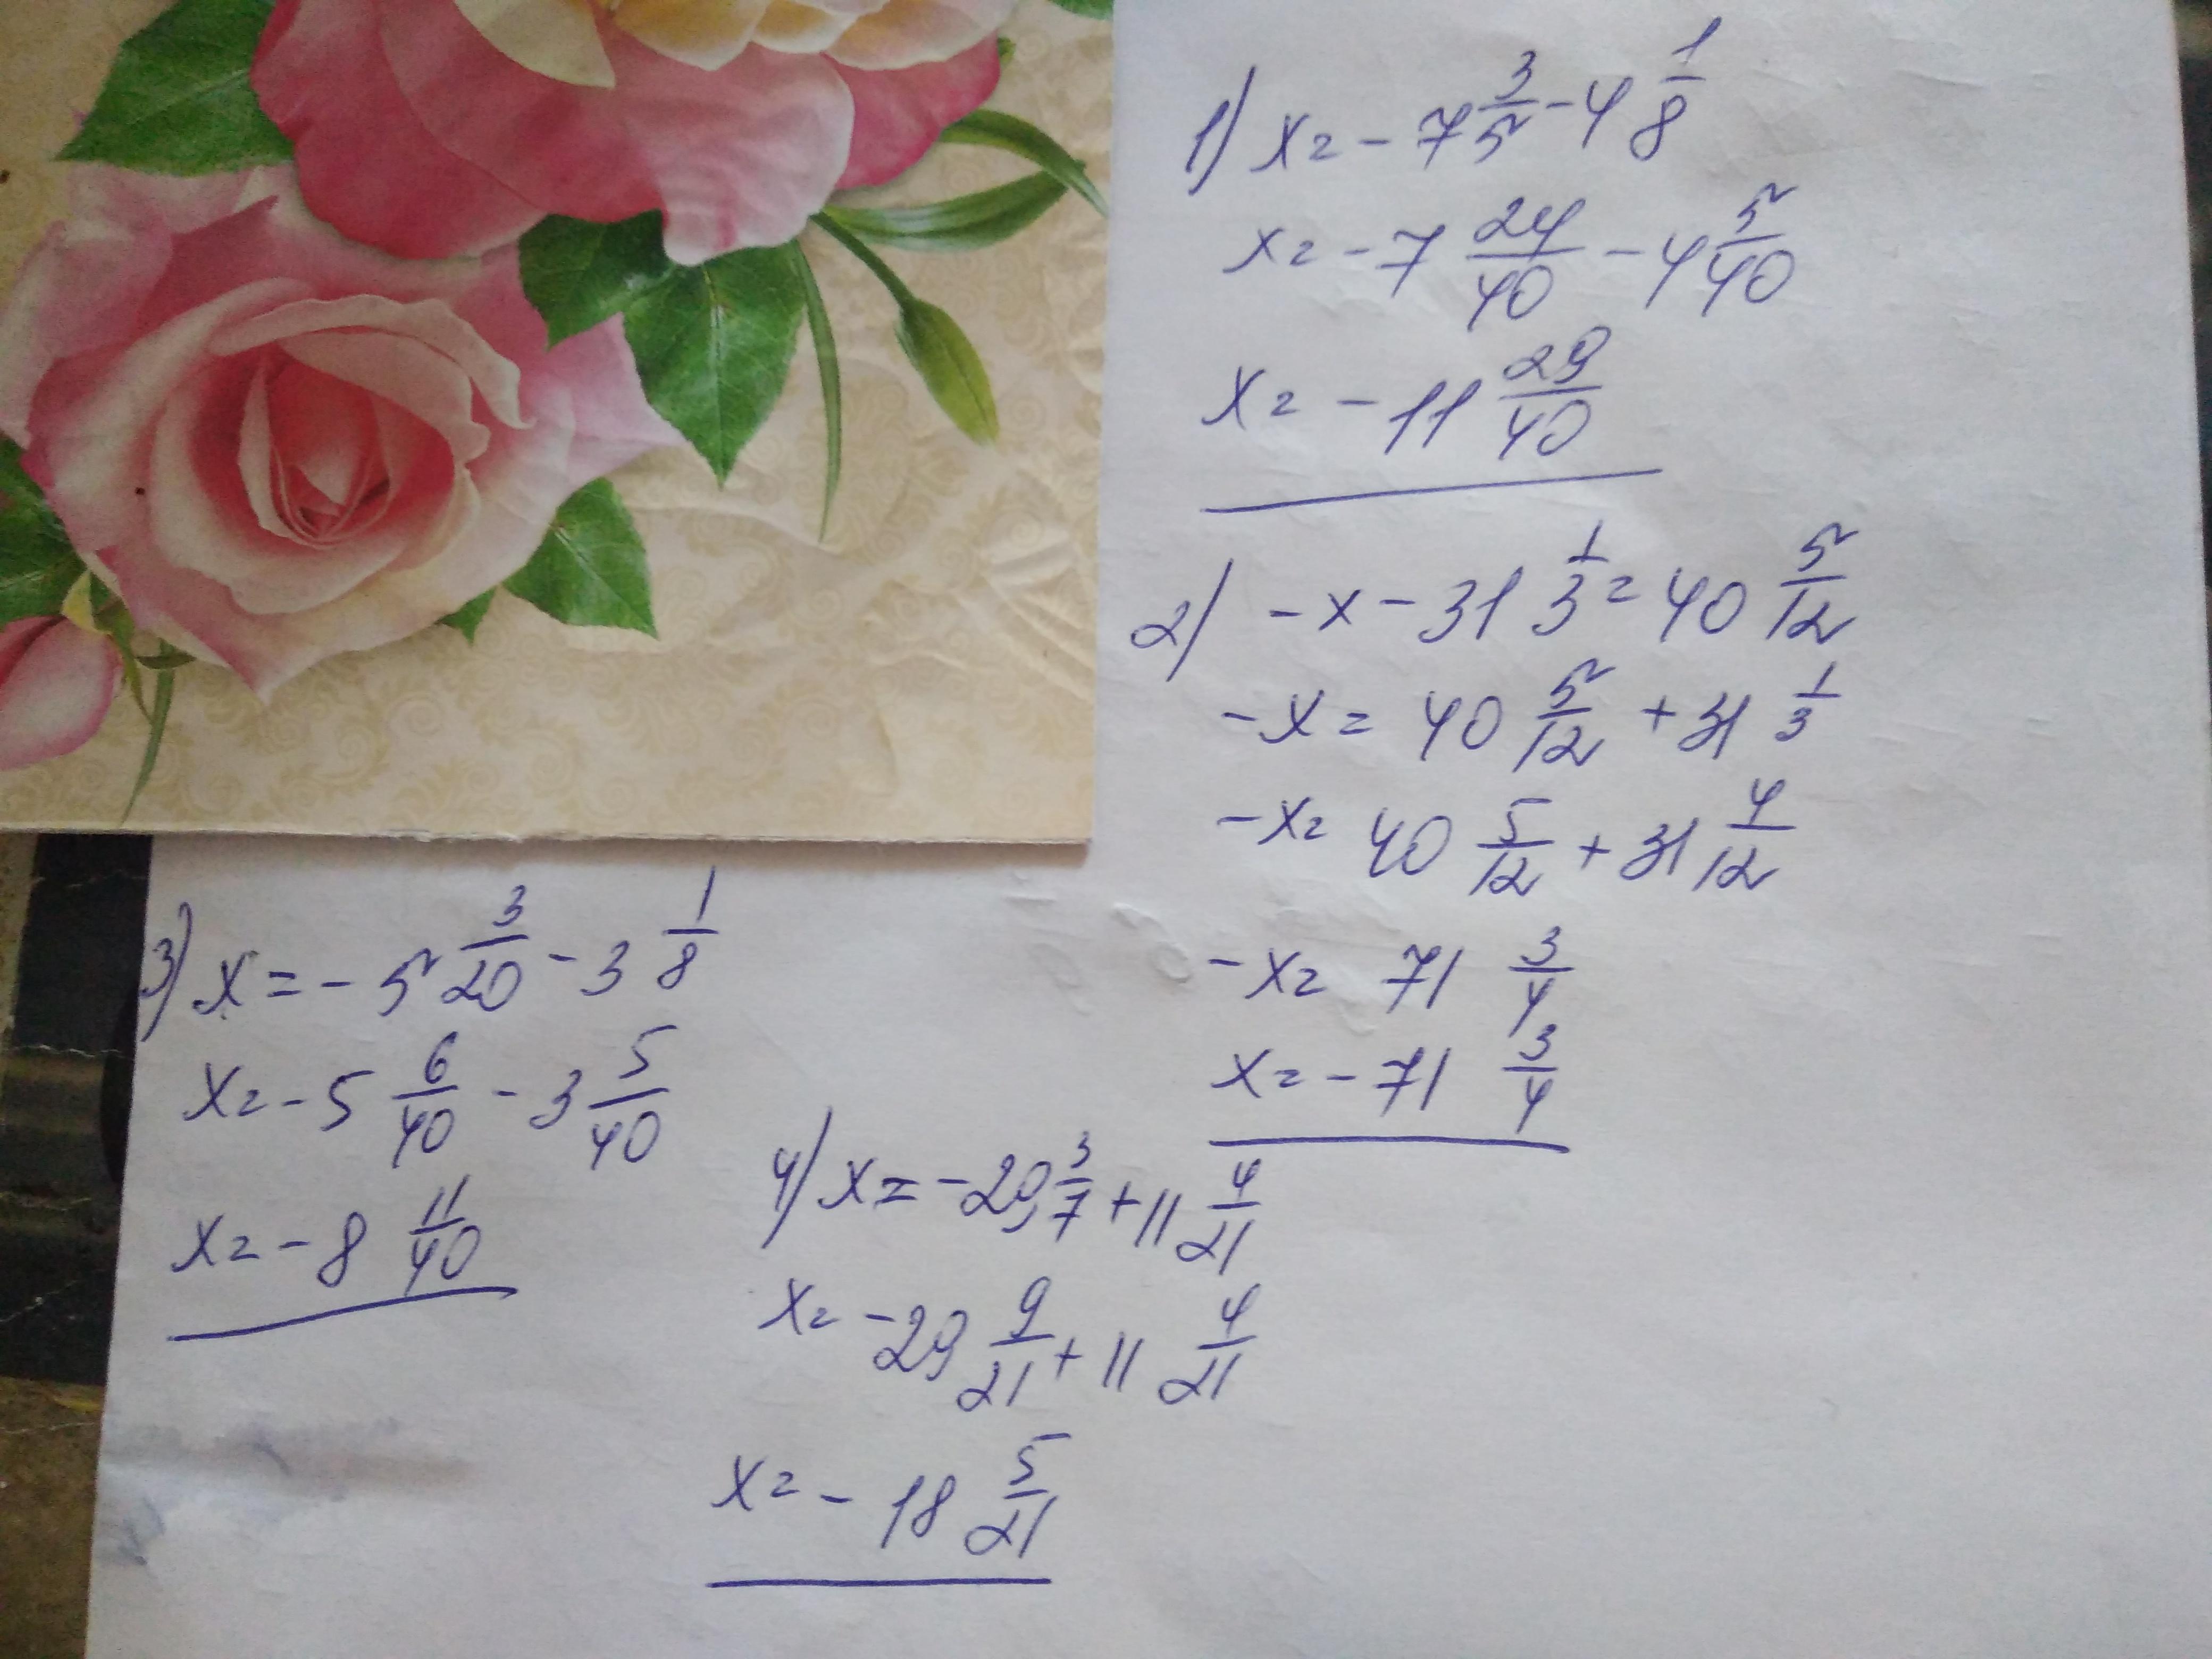 1) x = -7 3/5 - 4 1/8
x = -7 24/40 - 4 5/40
x = -11 29/40
2) -x - 31 1/3 = 40 5/12
-x = 40 5/12 + 31 1/3
-x = 40 5/12 + 31 4/12
-x = 71 3/4
x = -71 3/4
3) x = -5 3/20 - 3 1/8
x = -5 6/40 - 3 5/40
x = -8 11/40
4) x = -29 3/7 + 11 4/21
x = -29 9/21 + 11 4/21
x = -18 5/21